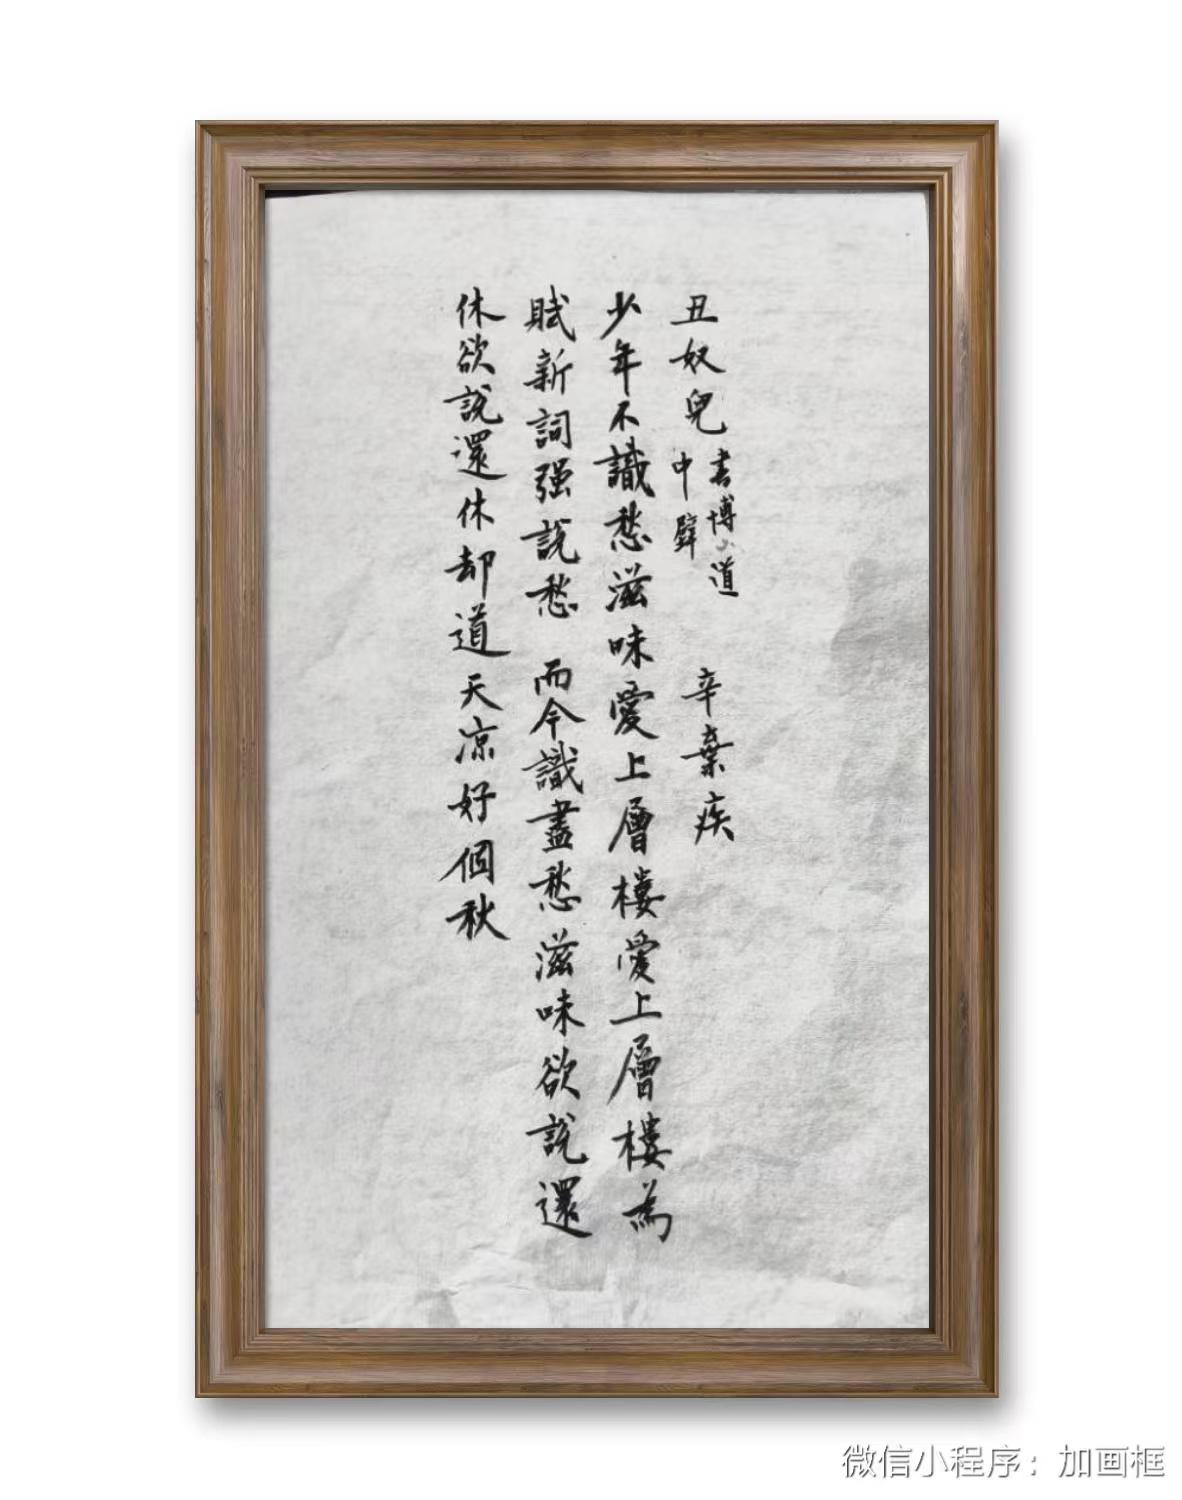 丑奴兒 書博道中壁 辛棄疾
少年不識愁滋味愛上層樓愛上層樓為
賦新詞强說愁 而今識盡愁滋味欲說還
休欲說還休却道天凉好個秋
微信小程序：加画框